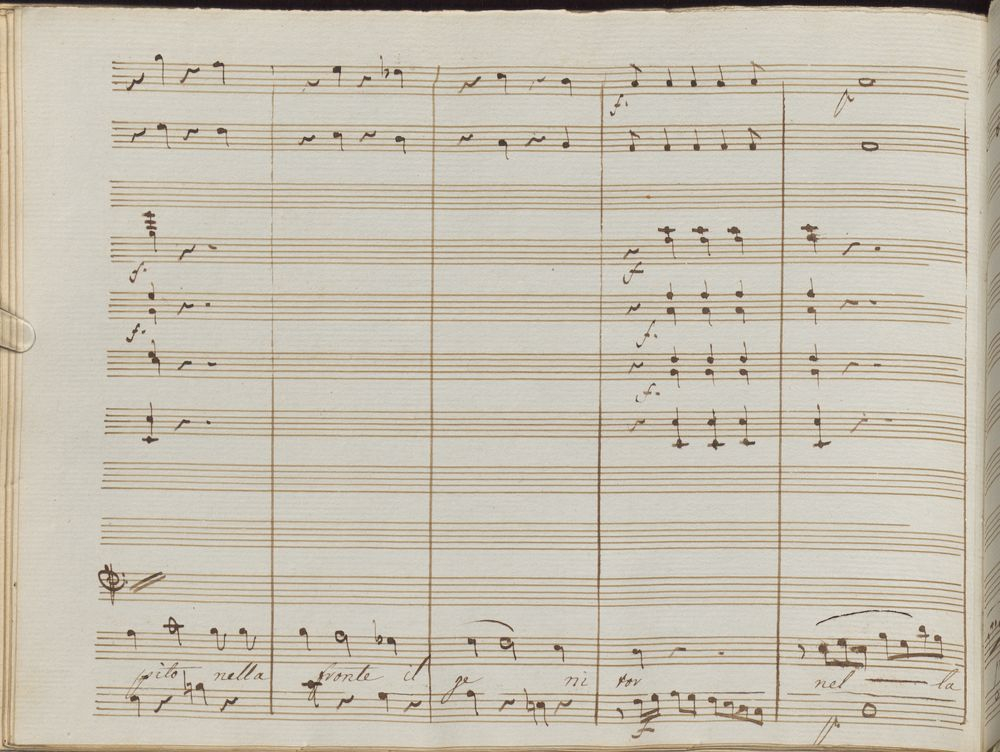 f. p
f. f
f. f.
f.
pito nella fronte il ge ni tor nel la
f p